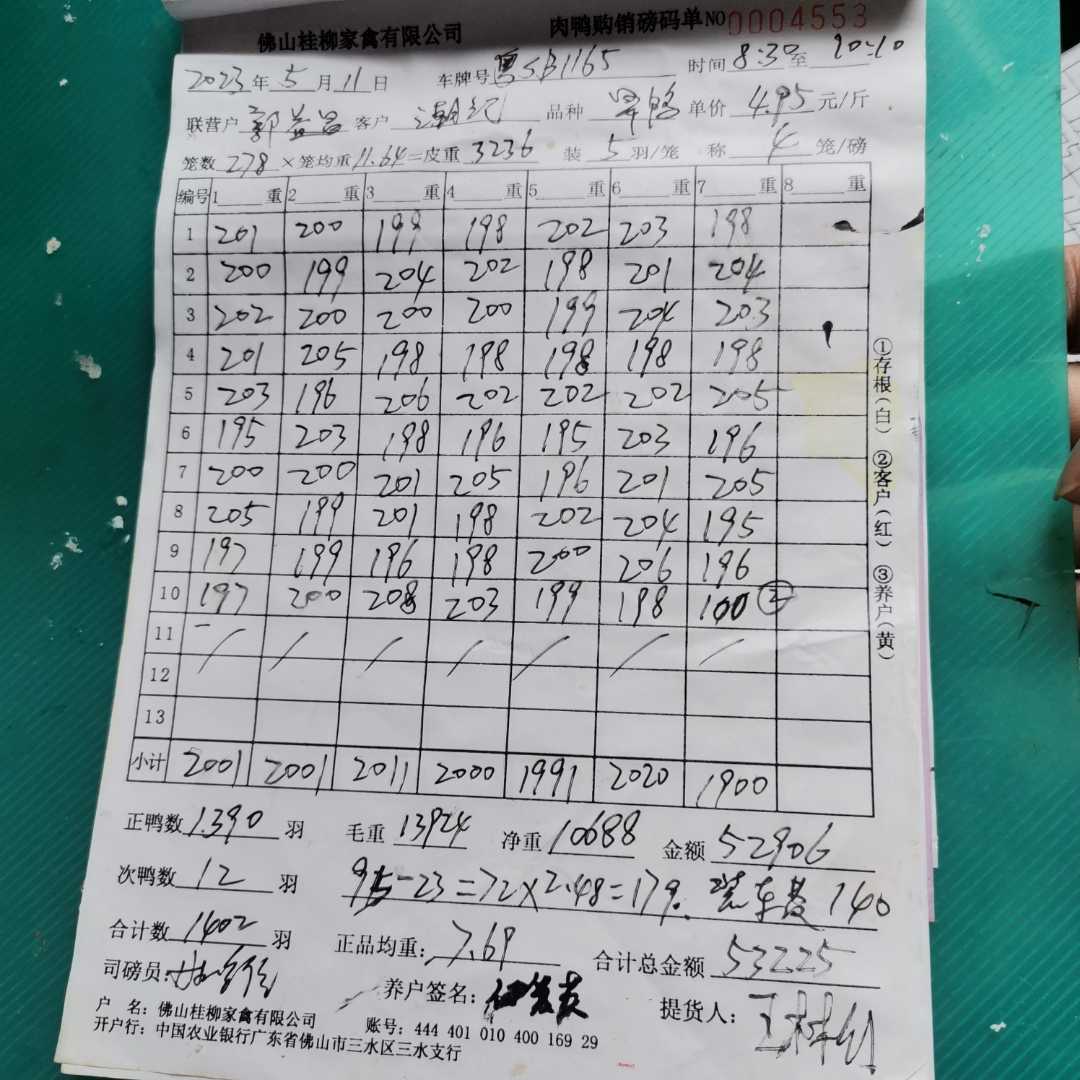 佛山桂柳家禽有限公司 肉鸭购销磅码单 NO 0004553
2023年5月11日 车牌号 粤SB1165 时间 8:30至 20:10
联营户 郭益昌 客户 潮记 品种 单价 4.95 元/斤
笼数 278 ×笼均重 11.64 =皮重 3236 装 5 羽/笼 称 4 笼/磅
编号 1 重 2 重 3 重 4 重 5 重 6 重 7 重 8 重
1 201 200 199 198 202 203 198
2 200 199 204 202 198 201 204
3 202 200 200 200 199 204 203
4 201 205 198 198 198 198 198
5 203 196 206 202 202 202 205
6 195 203 198 196 195 203 196
7 200 200 201 205 196 201 205
8 205 199 201 198 202 204 195
9 197 199 196 198 200 206 196
10 197 200 208 203 199 198 100 ②
11 / / / / / / /
12
13
小计 2001 2001 2011 2000 1991 2020 1900
正鸭数 1390 羽 毛重 13924 净重 10688 金额 52906
次鸭数 12 羽 95-23=72×2.48=179. 装车费 140
合计数 1402 羽 正品均重: 7.69 合计总金额 53225
司磅员: 养户签名: 提货人:
户 名: 佛山桂柳家禽有限公司 账号: 444 401 010 400 169 29
开户行: 中国农业银行广东省佛山市三水区三水支行
①存根(白) ②客户(红) ③养户(黄)